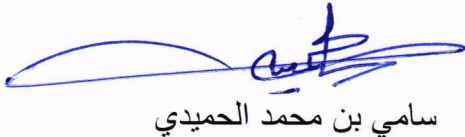 سامي بن محمد الحميدي